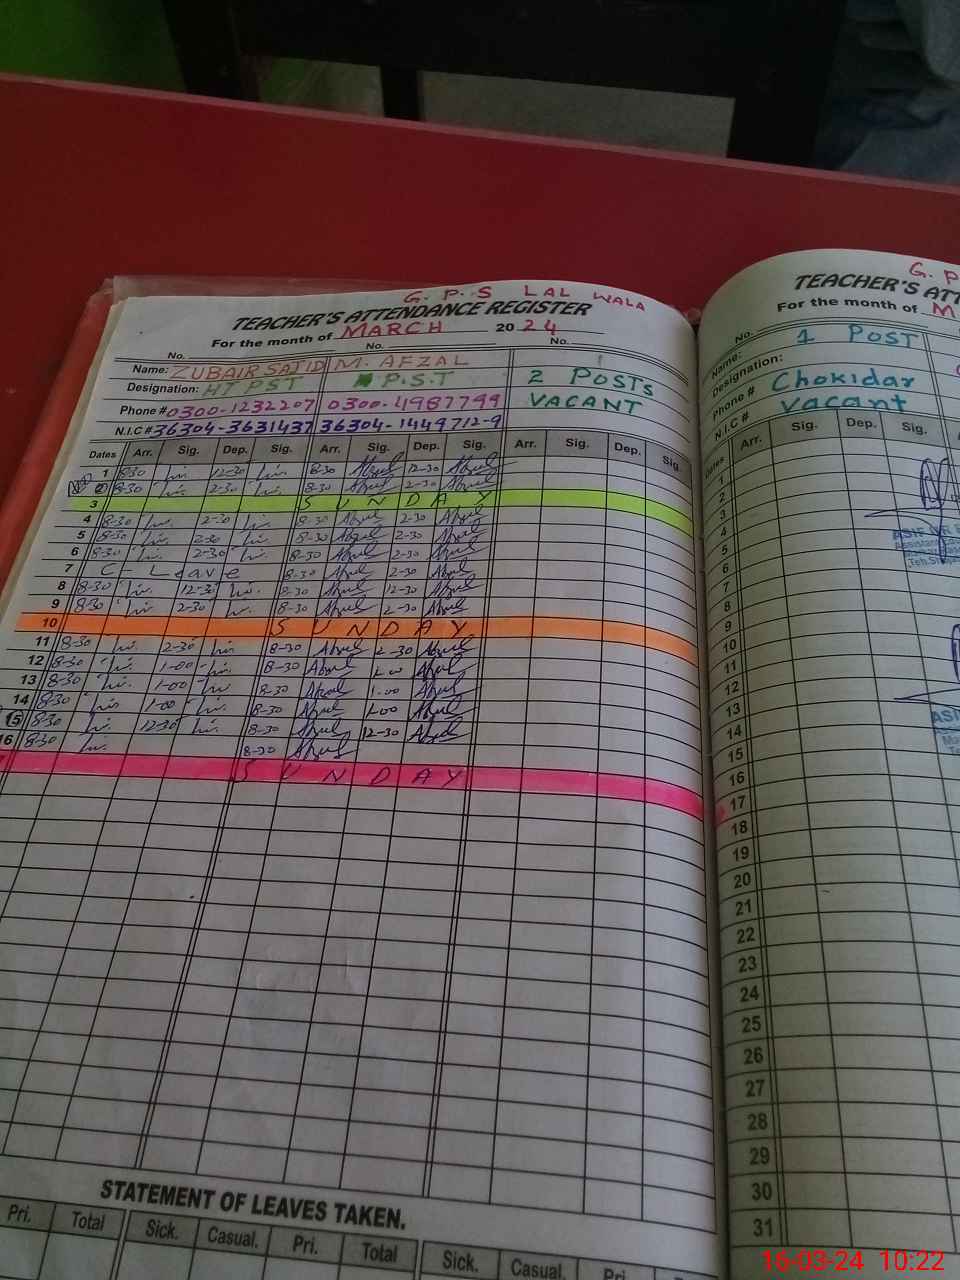 G. P. S LAL WALA
TEACHER'S ATTENDANCE REGISTER
For the month of MARCH 2024
No. No. No.
Name: ZUBAIR SAJID M. AFZAL
Designation: HT PST P.S.T 2 POSTs
Phone # 0300-1232207 0300-4987799 VACANT
N.I.C # 36304-3631437 36304-1449712-9
Dates Arr. Sig. Dep. Sig. Arr. Sig. Dep. Sig. Arr. Sig. Dep. Sig.
1 8-30 12-30 8-30 12-30
2 8-30 2-30 8-30 2-30
3 SUNDAY
4 8-30 2-30 8-30 2-30
5 8-30 2-30 8-30 2-30
6 8-30 2-30 8-30 2-30
7 C-Leave 8-30 2-30
8 8-30 12-30 8-30 12-30
9 8-30 2-30 8-30 2-30
10 SUNDAY
11 8-30 2-30 8-30 2-30
12 8-30 1-00 8-30 1-00
13 8-30 1-00 8-30 1-00
14 8-30 1-00 8-30 1-00
15 8-30 12-30 8-30 12-30
16 8-30 8-30
SUNDAY
STATEMENT OF LEAVES TAKEN.
Pri. Total Sick. Casual. Pri. Total Sick. Casual. Pri
G. P
TEACHER'S ATT
For the month of M
No. 1 POST
Name:
Designation: Chokidar
Phone # Vacant
N.I.C #
Dates Arr. Sig. Dep. Sig.
1
2
3
4
5
6
7
8
9
10
11
12
13
14
15
16
17
18
19
20
21
22
23
24
25
26
27
28
29
30
31
16-03-24 10:22